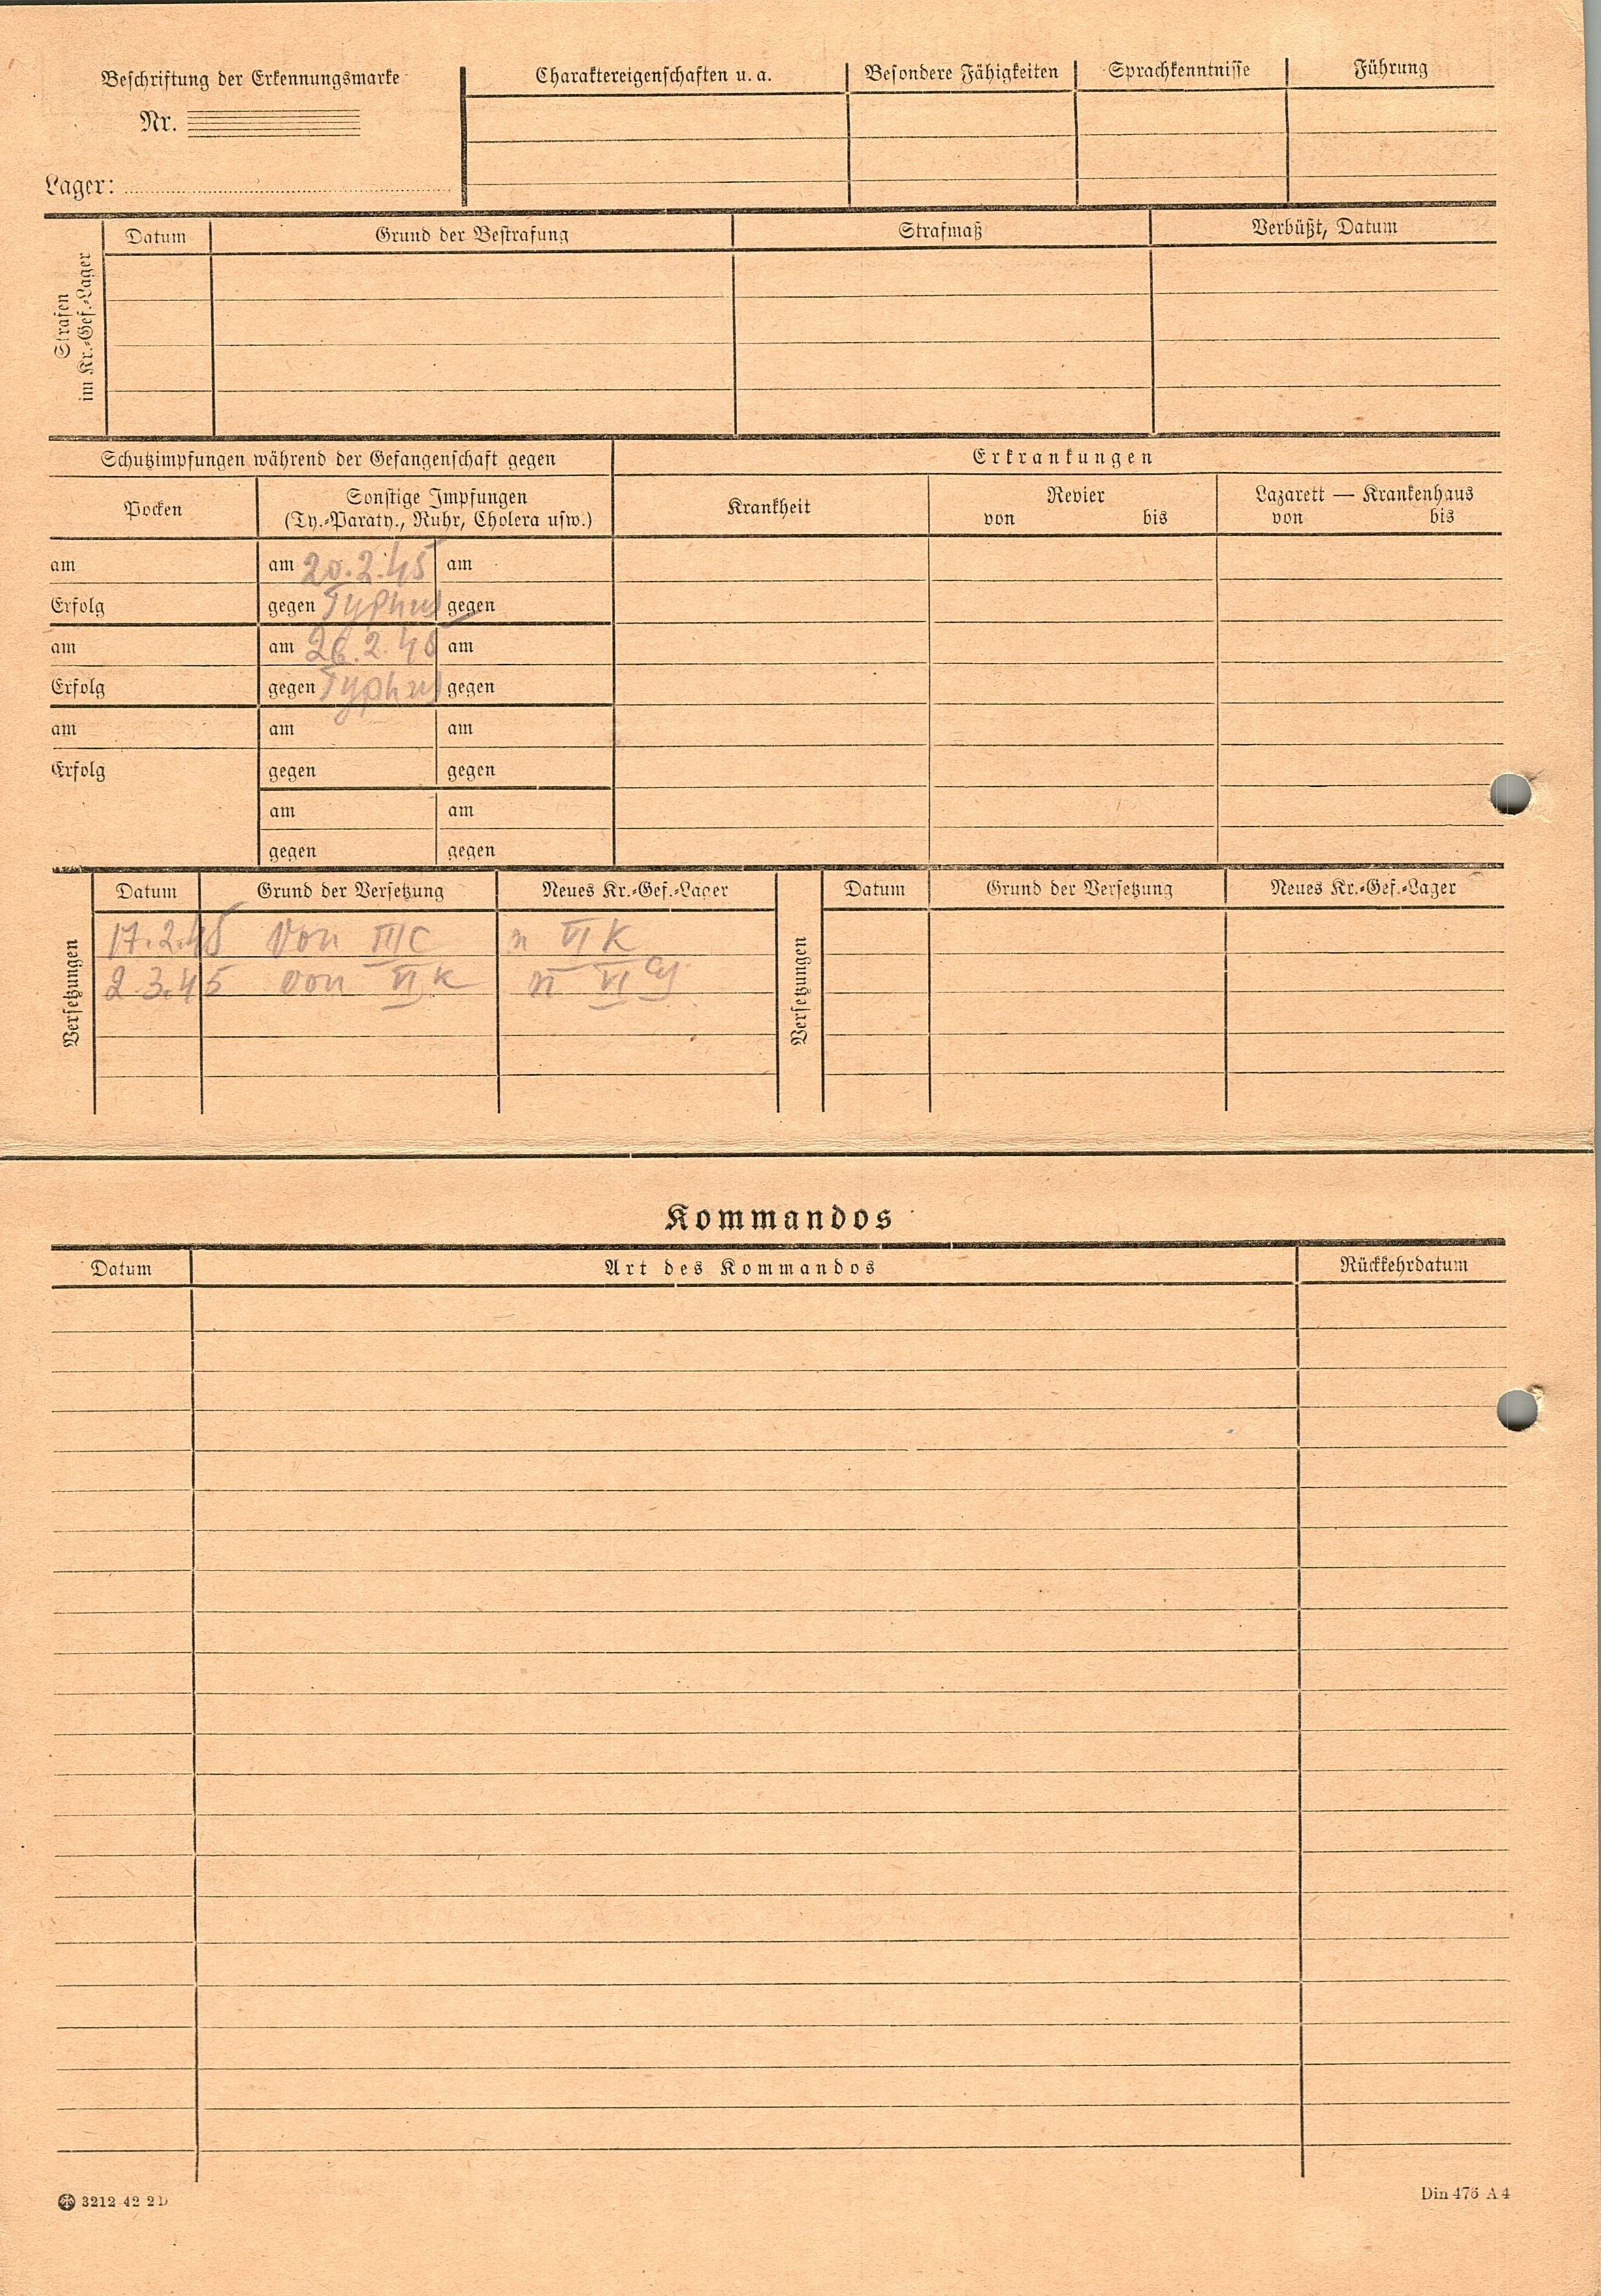 Beschriftung der Erkennungsmarke
Nr.
Lager:
Charaktereigenschaften u. a. Besondere Fähigkeiten Sprachkenntnisse Führung
Strafen
im Kr.-Gef.-Lager
Datum Grund der Bestrafung Strafmaß Verbüßt, Datum
Schutzimpfungen während der Gefangenschaft gegen Erkrankungen
Pocken Sonstige Impfungen
(Ty.-Paraty., Ruhr, Cholera usw.)
Krankheit Revier Lazarett — Krankenhaus
von bis von bis
am am 20.2.45 am
Erfolg gegen Typhus gegen
am am 26.2.45 am
Erfolg gegen Typhus gegen
am am am
Erfolg gegen gegen
am am
gegen gegen
Versetzungen
Datum Grund der Versetzung Neues Kr.-Gef.-Lager
17.2.45 von III C n VI K
2.3.45 von VI K n VI
Versetzungen
Datum Grund der Versetzung Neues Kr.-Gef.-Lager
Kommandos
Datum Art des Kommandos Rückkehrdatum
3212 42 2D
Din 476 A4